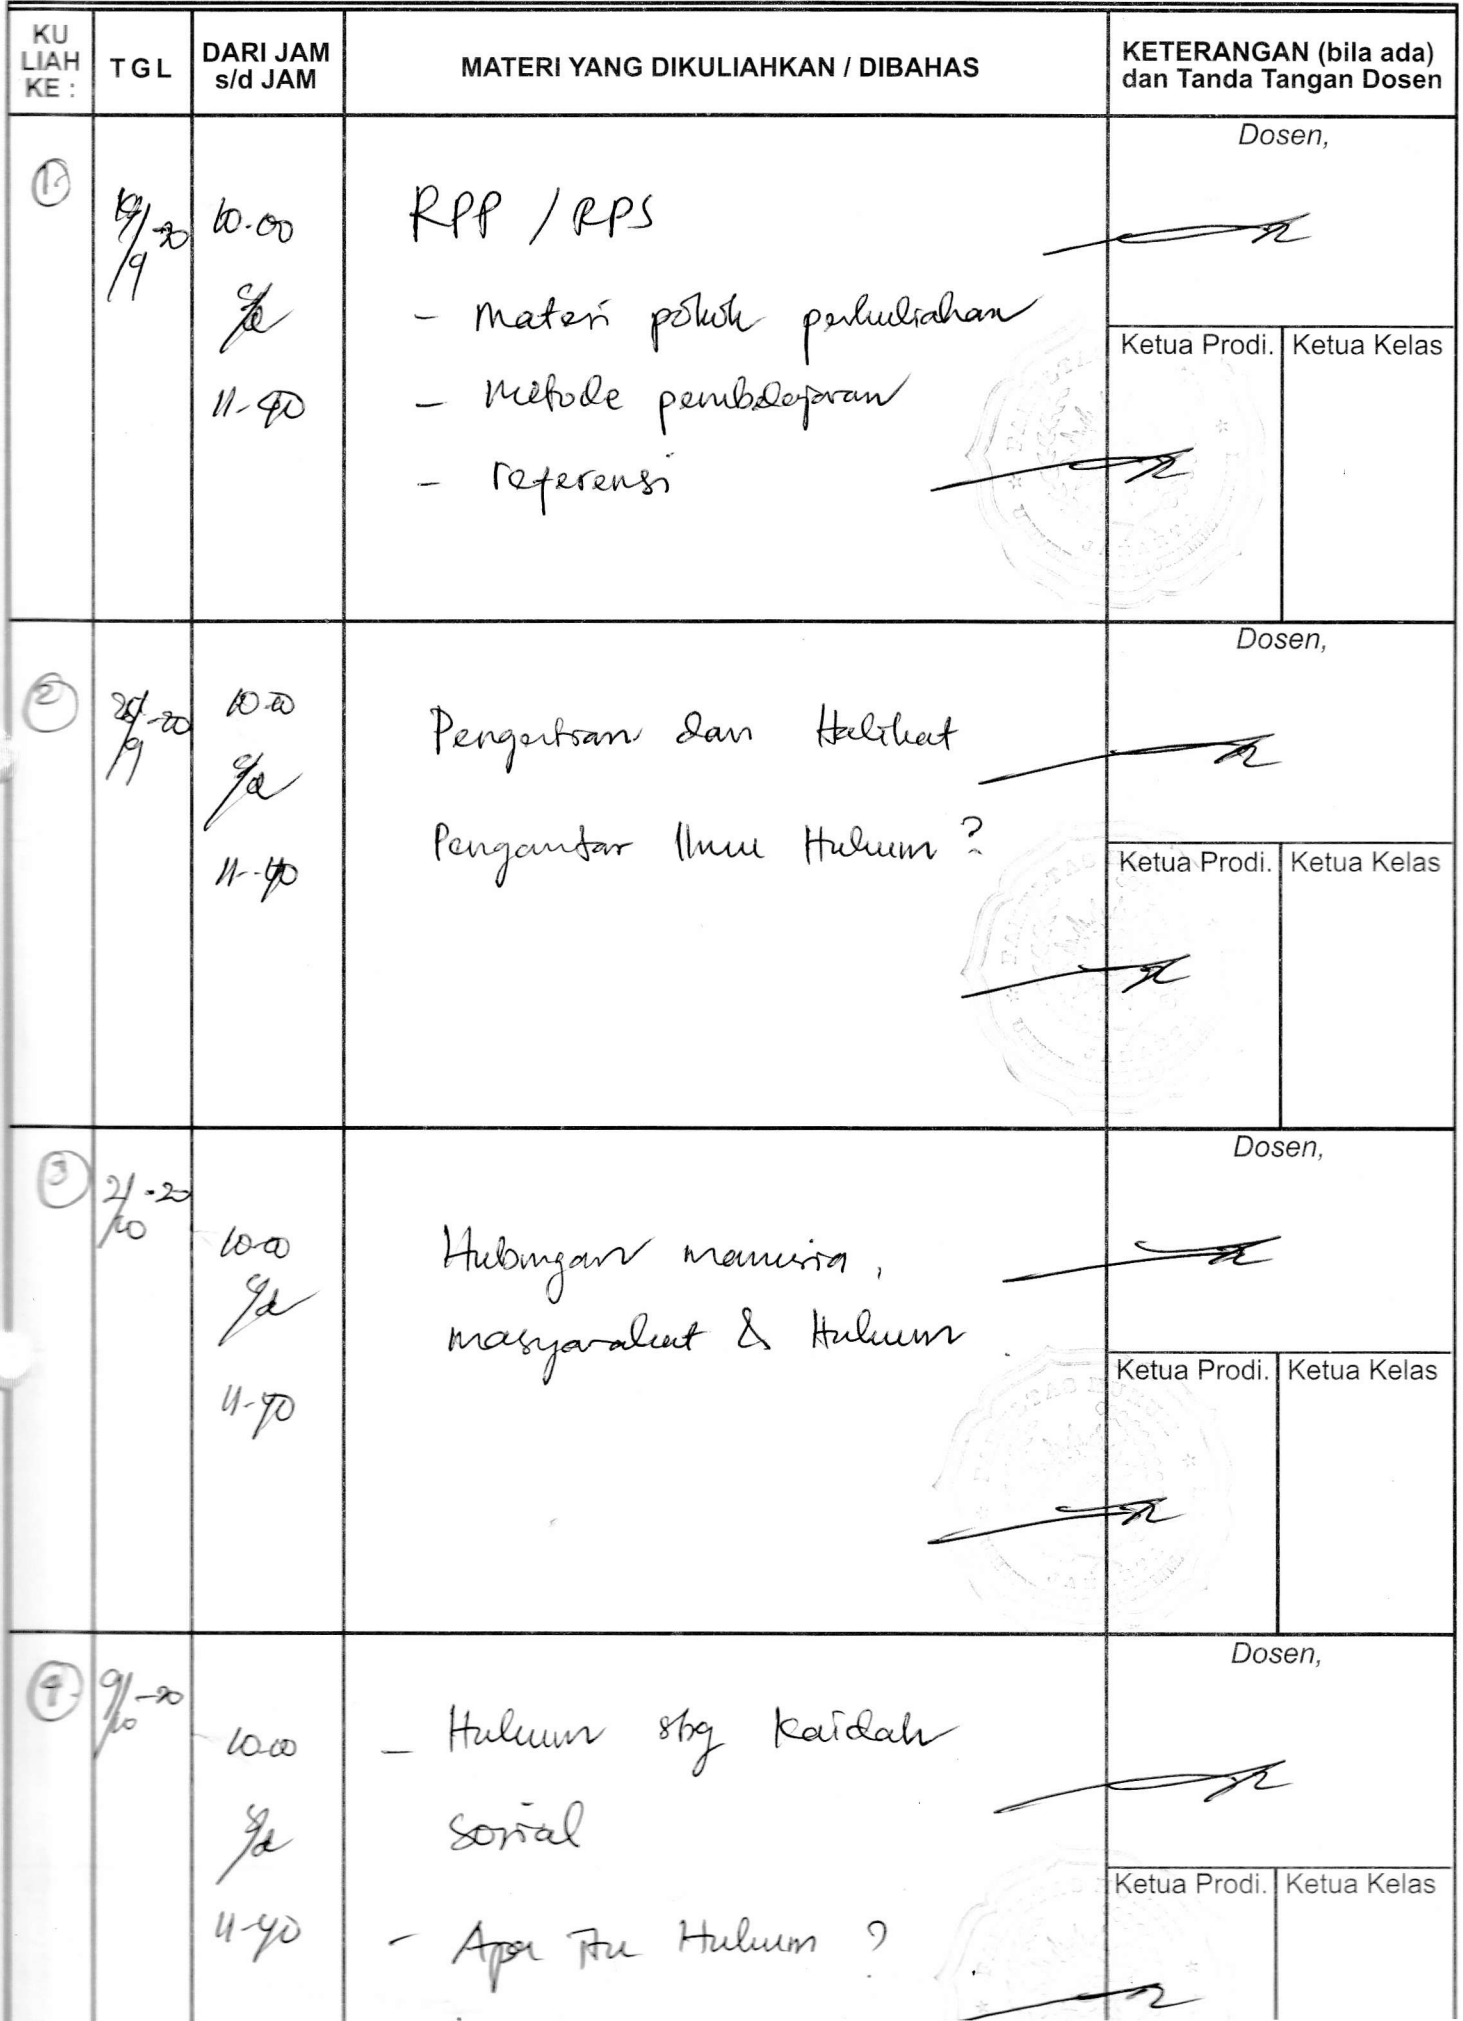 KU LIAH KE :
TGL
DARI JAM s/d JAM
MATERI YANG DIKULIAHKAN / DIBAHAS
KETERANGAN (bila ada) dan Tanda Tangan Dosen
1.
/9 -20
10.00
s/d
11-40
RPP / RPS
- Materi pokok perkuliahan
- Metode pembelajaran
- referensi
Dosen,
Ketua Prodi.
Ketua Kelas
2
25/9 -20
10.00
s/d
11-40
Pengertian dan Hakikat
Pengantar Ilmu Hukum ?
Dosen,
Ketua Prodi.
Ketua Kelas
3
2/10 -20
10.00
s/d
11-40
Hubungan manusia,
masyarakat & Hukum
Dosen,
Ketua Prodi.
Ketua Kelas
4.
9/10 -20
10.00
s/d
11-40
- Hukum sbg Kaidah
sosial
- Apa itu Hukum ?
Dosen,
Ketua Prodi.
Ketua Kelas